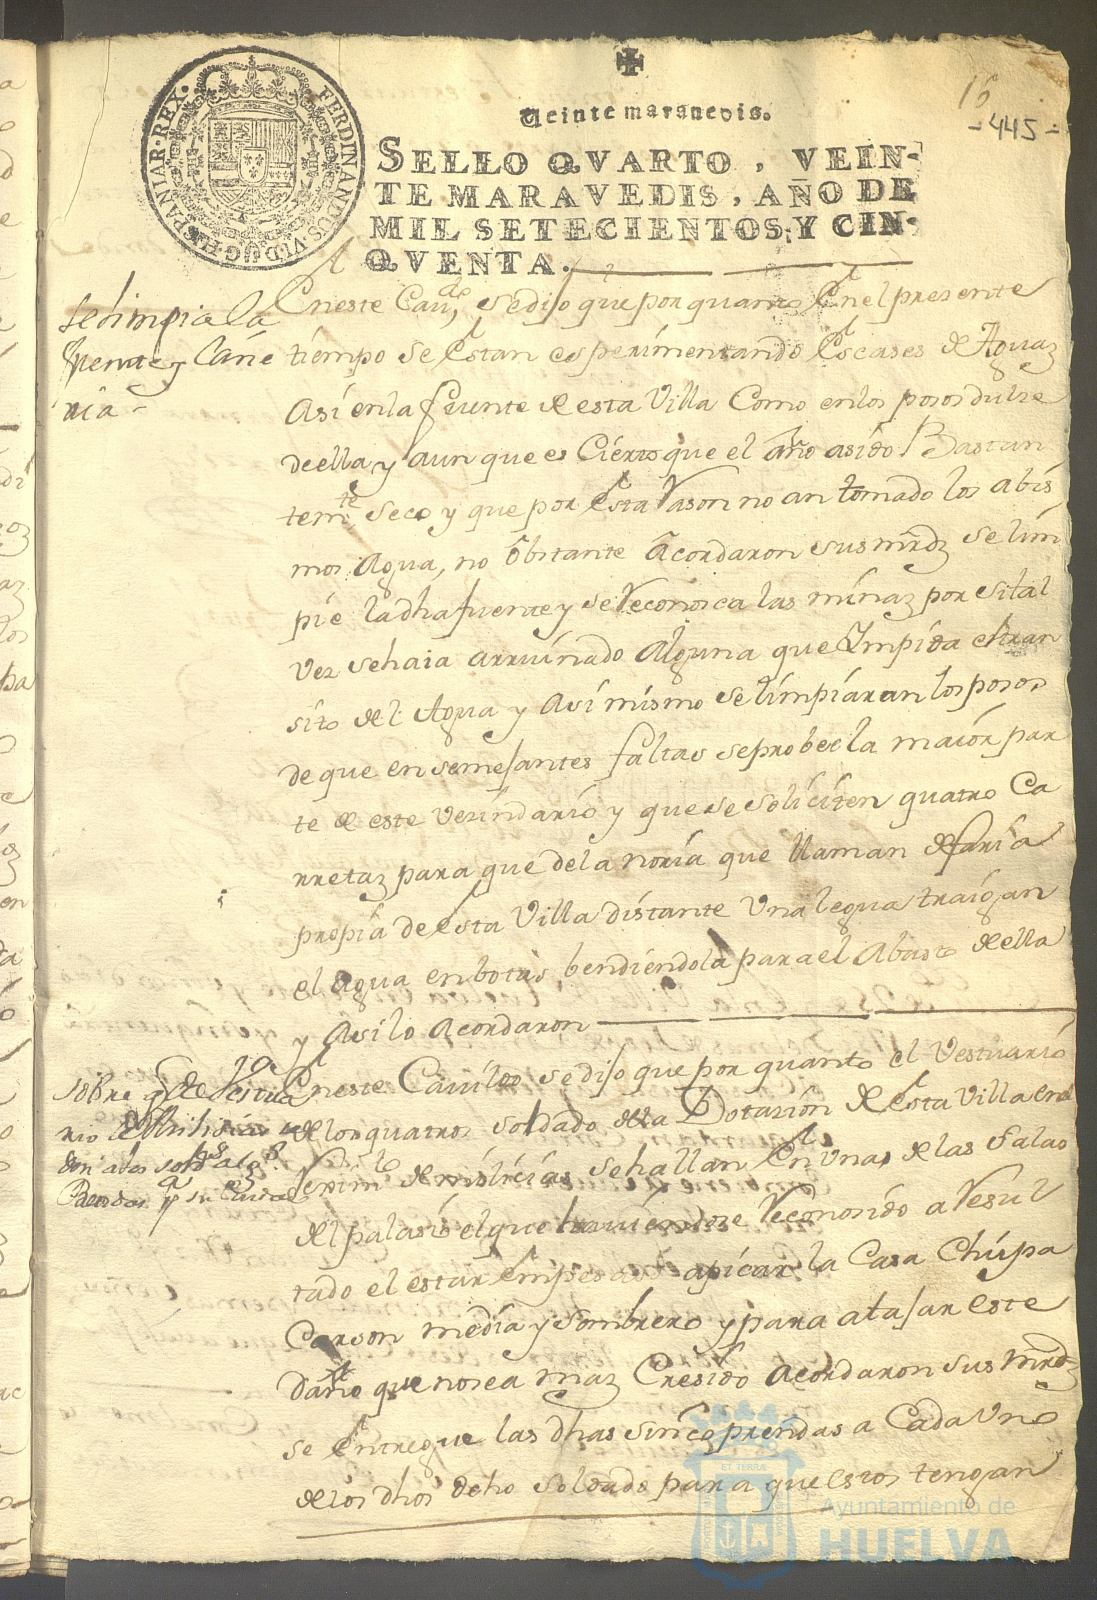 16
-445-
FERDINANDUS·VI·D·G·HISPANIAR·REX·
Veinte maravedis.
SELLO QVARTO, VEIN-
TE MARAVEDIS, AÑO DE
MIL SETECIENTOS, Y CIN-
QVENTA.
se limpie la
fuente y Cañe
ria-
En este Cavdo, se dijo que por quanto En el presente
tiempo se Estan esperimentando Escases de Aguaz
Asi en la fuente de esta Villa Como en los posos dulse
de ella y aun que es Cierto que el año a sido Bastan
temte, seco y que por Esta Rason no an tomado los abis
mos Agua, no Obstante Acordaron sus mrdz se lim
pie la dha fuente y se Reconosca las minaz por si tal
vez se haia arruinado Alguna que Impida el tran
sito del Agua y Asi mismo se limpiaran los posos
de que en semejantes faltas se probee la maior par
te de este vezindario y que se soliciten quatro Ca
rretaz para que de la noria que llaman de faria
propia de Esta Villa distante Una legua traigan
el agua en botas bendiendola para el Abasto de ella
y Asi lo Acordaron
sobre q de
En este Cavildo se dijo que por quanto el Vestuario
de los quatro soldado de la Dotazion de Esta Villa en el
Reximto de milicias se hallan En una de las Salas
del palasio el que haviendose Reconosido a Resul
tado el estar Empesado apicar la Casa Chupa
Carson media y Sombrero y para atajar este
Daño que no sea maz Cresido Acordaron sus mrdz
se Entregue las dhas sinco prendas a Cada Uno
de los dhos ocho soldado para que estos tengan
ET TERRÆ
Ayuntamiento de
HUELVA